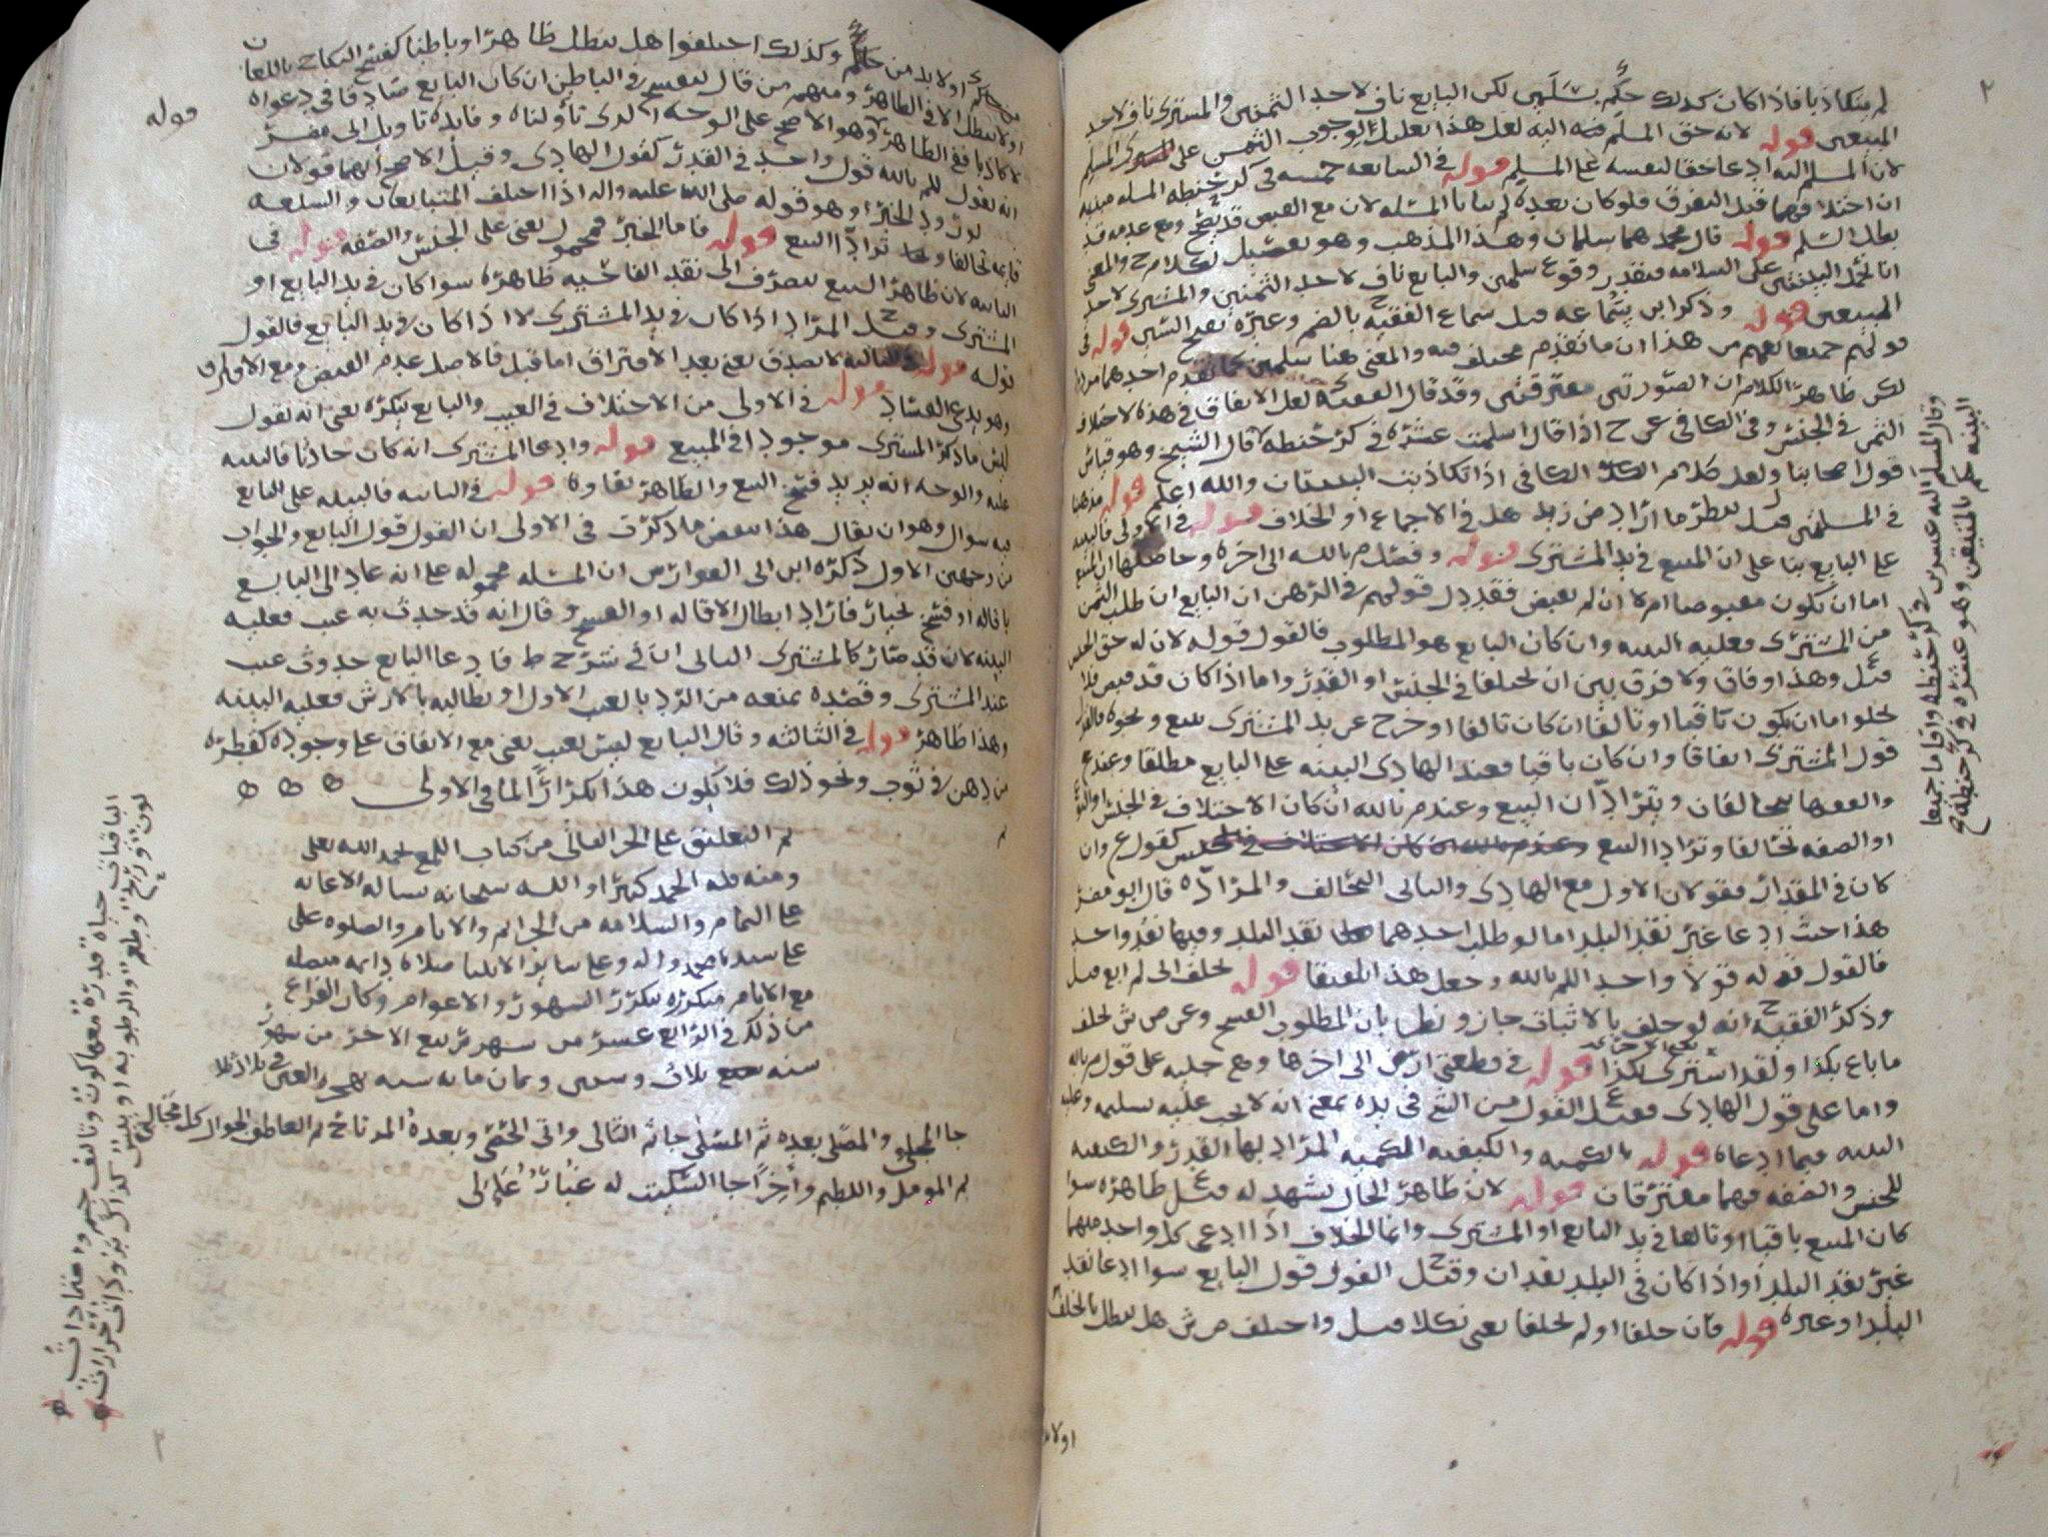 لم يتكاذبا فاذا كان كذلك حكم بسَلَمين لكن البايع ناف لاحد الثمنين والمشترى ناف لاحد
المبيعين قوله لانه حق المسلم فيه اليه لعل هذا تعليل لوجوب الثمن على المسلم
لان المسلم اليه ادعا حقا لنفسه على المسلم قوله في السابعه خمسه في كر حنطه المسله مبنيه
ان اختلافهما قبل التفرق فلو كان بعده لم يتاتا المسله لان مع القبض قد صح ومع عدمه قد
بطل السلم قوله قال محمد هما سلمان وهذا المذهب وهو تفصيل لكلام ح والمعنى
انا نحمل البينتين على السلامه فنقدر وقوع سلمين والبايع ناف لاحد الثمنين والمشترى لاحد
المبيعين قوله وذكر ابن سماعه قيل سماع الفقيه ح بالضم وغيره بفتح السين قوله في
قولهم جميعا يفهم من هذا ان ما تقدم مختلف فيه والمعنى هنا سلمين كما تقدم احدهما مراد
لكن ظاهر الكلام ان الصورتين مفترقتين وقد قال الفقيه ح لعل الاتفاق في هذه لاختلاف
الثمن في الجنس وفي الكافي عن ح اذا قال اسلمت عشره في كر حنطه قال الشيخ وهو قياس
قول اصحابنا ولعل كلام الكافي اذا تكاذبت البينتان والله اعلم قوله مذهبنا
في المسلمين قيل ينظر ما اراد ض زيد هل في الاجماع او الخلاف قوله في الاولى فالبينه
على البايع بنا على ان المبيع في يد المشترى قوله وفصل م بالله الى اخره وحاصلها ان المبيع
اما ان يكون مقبوضا ام لا ان لم يقبض فقد دل قولهم في الرهن ان البايع ان طلب الثمن
من المشترى فعليه البينه وان كان البايع هو المطلوب فالقول قوله لان له حق الحبس
قيل وهذا وفاق ولا فرق بين ان يختلفا في الجنس او القدر واما اذا كان قد قبض فلا
يخلو اما ان يكون باقيا او تالفا ان كان تالفا او خرج عن يد المشترى ببيع ونحوه فالقول
قول المشترى اتفاقا وان كان باقيا فعند الهادى البينه على البايع مطلقا وعند ع
والفقها يتحالفان ويترادان البيع وعند م بالله ان كان الاختلاف في الجنس او النوع
او الصفه تحالفا وترادا البيع كقول ع وان
كان في المقدار فقولان الاول مع الهادى والثانى التحالف والمراده قال ابو مضر
هذا حيث ادعا غير نقد البلد اما لو طلب احدهما نقد البلد وفيها نقد واحد
فالقول قوله قولا واحدا للم بالله وجعل هذا تلفيقا قوله يحلف انى لم ابع قيل
وذكر الفقيه ح انه لو حلف بالاثبات جاز ونظر بان المطلوب الفسخ وعن ص ش يحلف
ما باع بكذا ولقد اشترى بكذا قوله في قطعتى ارض الى اخرها ومع حليه على قول م بالله
واما على قول الهادى فقيل ع القول لمن البيع في يده بمعنى انه لا يجب عليه تسليمه وعليه
البينه فيما ادعاه قوله بالكميه والكيفيه الكميه المراد بها القدر والكيفيه
للجنس والصفه فهما مفترقان قوله لان ظاهر الحال يشهد له قيل ع ظاهره سوا
كان المبيع باقيا او تالفا في يد البايع او المشترى وانما الخلاف اذا ادعى كل واحد منهما
غير نقد البلد او اذا كان في البلد نقدان وقيل ح القول قول البايع سوا ادعا نقد
البلد او غيره قوله فان حلفا او لم يحلفا يعنى نكلا قيل واختلف ص ش هل يبطل بالتحالف
البينه حكم بالمتيقن وهو عشره في كر حنطه ح
وقال المسلم اليه عشرين في كر حنطه واقاما جميعا
اولا بد
اولا بد من حكم حاكم وكذلك اختلفوا هل يبطل ظاهرا وباطنا كفسخ النكاح باللعان
اولا يبطل الا في الظاهر ومنهم من قال ينفسخ في الباطن ان كان البايع صادقا في دعواه
لا كاذبا ففي الظاهر وهو الاصح على الوجه الذى تاولناه وفايده تاويل ابى مضر
انه يقول للم بالله قول واحد في القدر كقول الهادى وقيل الاصح انهما قولان
لورود الخبر وهو قوله صلى الله عليه واله اذا اختلف المتبايعان والسلعه
قايمه تحالفا وترادا البيع قوله فاما الخبر فمحمول يعنى على الجنس والصفه قوله في
الثانيه لان ظاهر البيع ينصرف الى نقد الفاحيه ظاهره سوا كان في يد البايع او
المشترى وقيل ح المراد اذا كان في يد المشترى لا اذا كان في يد البايع فالقول
قوله قوله في الثالثه لا يصدق يعنى بعد الافتراق اما قبل فالاصل عدم القبض ومع الافتراق
وهو يدعى الفساد قوله في الاولى من الاختلاف في العيب والبايع ينكره يعنى انه يقول
ليس ما ذكر المشترى موجودا في المبيع قوله وادعا المشترى انه كان حادثا فالبينه
عليه والوجه انه يريد فسخ البيع والظاهر بقاوه قوله في الثانيه فالبينه على البايع
فيه سوال وهو ان يقال هذا ينقض ما ذكرت في الاولى ان القول قول البايع والجواب
من وجهين الاول ذكره ابن ابى الفوارس ان المسله محموله على انه عاد الى البايع
باقاله او فسخ بخيار فاراد ابطال الاقاله او الفسخ وقال انه قد حدث به عيب فعليه
البينه لانه قد صار كالمشترى الثانى اتى في شرح ط فادعا البايع حدوث عيب
عند المشترى وقصده يمنعه من الرد بالعيب الاول او يطالبه بالارش فعليه البينه
وهذا ظاهر قوله في الثالثه وقال البايع ليس بعيب يعنى مع الاتفاق على وجوده كقطره
من دهن في ثوب ونحو ذلك فلا يكون هذا تكرارا لما في الاولى
تم التعليق على الجز الثانى من كتاب اللمع بحمد الله تعلى
ومنه فله الحمد كثيرا والله سبحانه نساله الاعانه
على التمام والسلامه من الجرايم والاثام والصلوه على
على سيدنا محمد واله وعلى ساير الانبيا صلاة دايمه متصله
مع الايام متكرره بتكرر الشهور والاعوام وكان الفراغ
من ذلك في الرابع عشر من شهر ربيع الاخر من شهور
سنه ثلاث وسبعين وثمان مايه سنه
جا المجلى والمصلى بعده ثم المسلى جا ثم التالى واتى الحظى وبعده المرتاح ثم العاطف الجوال
ثم المومل واللطيم واخرا جا السكيت له عثار
قوله
الباقيات حياة قدرة معها كون وتاليف جسم
لون وريح وطعم والرطوبه او يبس كذاك برودات حرارات